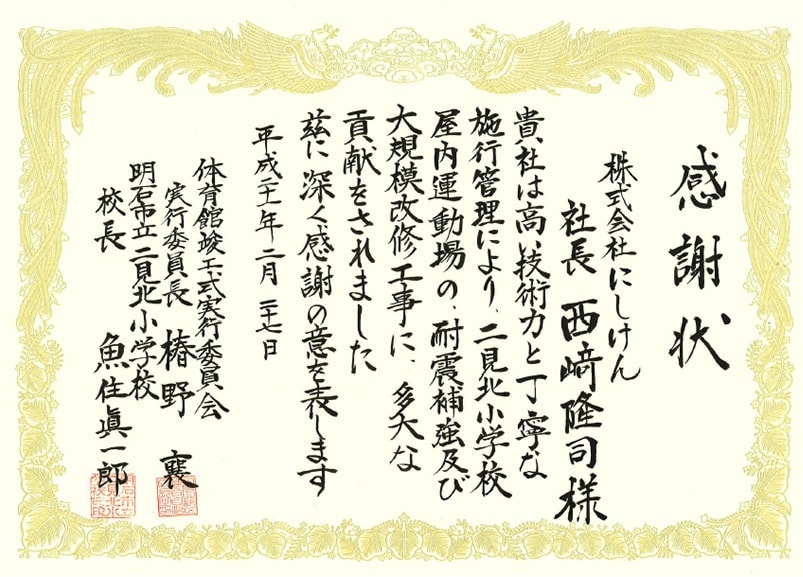 感謝状
株式会社にしけん
社長 西﨑隆司様
貴社は高い技術力と丁寧な
施行管理により、二見北小学校
屋内運動場の、耐震補強及び
大規模改修工事に、多大な
貢献をされました
茲に深く感謝の意を表します
平成二十一年二月二十七日
体育館竣工式実行委員会
実行委員長 椿野 襄
明石市立二見北小学校
校長 魚住眞一郎